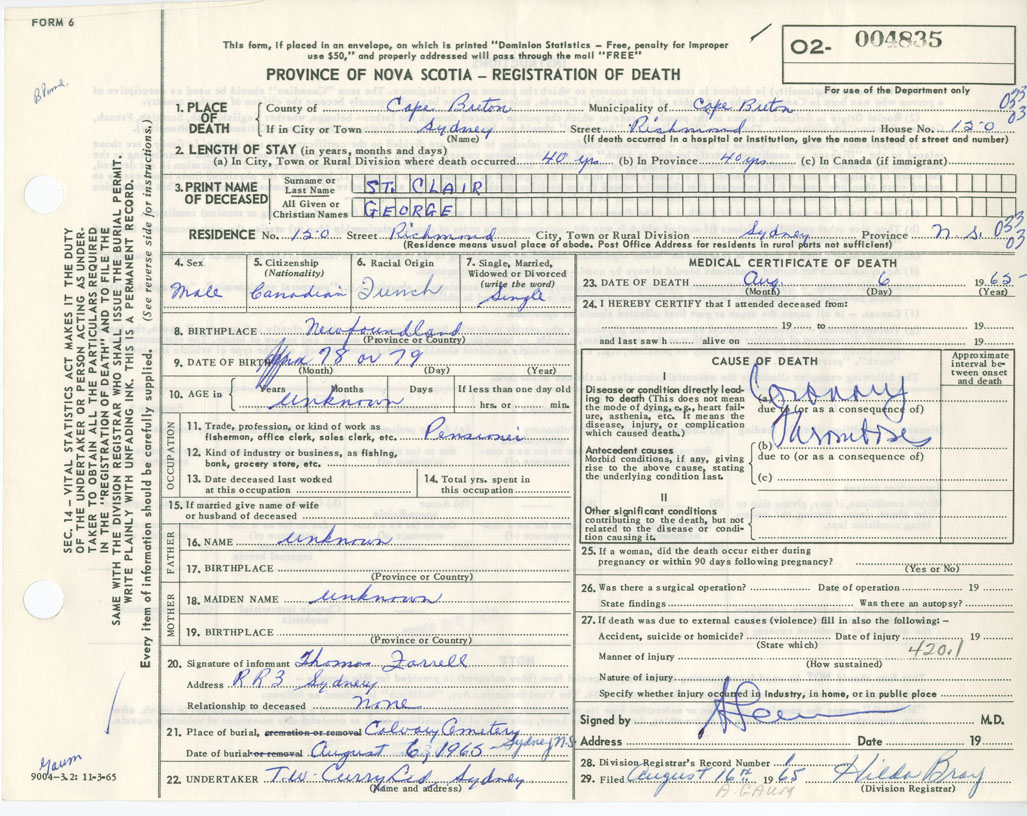 FORM 6
This form, if placed in an envelope, on which is printed "Dominion Statistics – Free, penalty for improper
use $50," and properly addressed will pass through the mail "FREE"
PROVINCE OF NOVA SCOTIA – REGISTRATION OF DEATH
O2- 004835
For use of the Department only
1. PLACE OF DEATH County of Cape Breton Municipality of Cape Breton 033
If in City or Town Sydney Street Richmond House No. 120 03
(Name) (If death occurred in a hospital or institution, give the name instead of street and number)
2. LENGTH OF STAY (in years, months and days)
(a) In City, Town or Rural Division where death occurred 40 yrs. (b) In Province 40 yrs (c) In Canada (if immigrant)
3. PRINT NAME OF DECEASED Surname or Last Name ST. CLAIR
All Given or Christian Names GEORGE
RESIDENCE No. 120 Street Richmond City, Town or Rural Division Sydney Province N. S. 033
03
(Residence means usual place of abode. Post Office Address for residents in rural parts not sufficient)
4. Sex Male
5. Citizenship (Nationality) Canadian
6. Racial Origin French
7. Single, Married, Widowed or Divorced (write the word) Single
8. BIRTHPLACE Newfoundland
(Province or Country)
9. DATE OF BIRTH 78 or 79
(Month) (Day) (Year)
10. AGE in Years Months Days If less than one day old
unknown hrs. or min.
OCCUPATION
11. Trade, profession, or kind of work as fisherman, office clerk, sales clerk, etc. Pensioner
12. Kind of industry or business, as fishing, bank, grocery store, etc.
13. Date deceased last worked at this occupation
14. Total yrs. spent in this occupation
15. If married give name of wife or husband of deceased
FATHER
16. NAME unknown
17. BIRTHPLACE
(Province or Country)
MOTHER
18. MAIDEN NAME unknown
19. BIRTHPLACE
(Province or Country)
20. Signature of informant Thomas Farrell
Address R R 3 Sydney
Relationship to deceased None
21. Place of burial, cremation or removal Calvary Cemetery
Date of burial or removal August 6, 1965 - Sydney N.S.
22. UNDERTAKER T.W. Curry Ltd, Sydney
(Name and address)
MEDICAL CERTIFICATE OF DEATH
23. DATE OF DEATH Aug. 6 1965
(Month) (Day) (Year)
24. I HEREBY CERTIFY that I attended deceased from:
19 to 19
and last saw h alive on 19
CAUSE OF DEATH
Approximate interval between onset and death
I
Disease or condition directly leading to death (This does not mean the mode of dying, e.g., heart failure, asthenia, etc. It means the disease, injury, or complication which caused death.)
(a) Coronary
due to (or as a consequence of)
Thrombosis
Antecedent causes
Morbid conditions, if any, giving rise to the above cause, stating the underlying condition last.
(b)
due to (or as a consequence of)
(c)
II
Other significant conditions contributing to the death, but not related to the disease or condition causing it.
25. If a woman, did the death occur either during pregnancy or within 90 days following pregnancy?
(Yes or No)
26. Was there a surgical operation? Date of operation 19
State findings Was there an autopsy?
27. If death was due to external causes (violence) fill in also the following –
Accident, suicide or homicide? Date of injury 19
(State which) 420.1
Manner of injury
(How sustained)
Nature of injury
Specify whether injury occurred in industry, in home, or in public place
Signed by M.D.
Address Date 19
28. Division Registrar's Record Number
29. Filed August 16th 1965 Hilda Bray
A. GAUM (Division Registrar)
SEC. 14 – VITAL STATISTICS ACT MAKES IT THE DUTY
OF THE UNDERTAKER OR PERSON ACTING AS UNDER-
TAKER TO OBTAIN ALL THE PARTICULARS REQUIRED
IN THE "REGISTRATION OF DEATH" AND TO FILE THE
SAME WITH THE DIVISION REGISTRAR WHO SHALL ISSUE THE BURIAL PERMIT.
WRITE PLAINLY WITH UNFADING INK. THIS IS A PERMANENT RECORD.
Every item of information should be carefully supplied. (See reverse side for instructions.)
Gaum
9004-3.2: 11-3-65